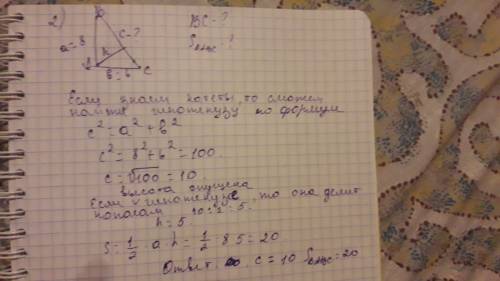 2)
B
a=8
c-?
h
A
b=6
C
BC-?
S
-?
Если знаем катеты, то сможем
найти гипотенузу по формуле
c² = a² + b²
c² = 8² + 6² = 100
c = √100 = 10
высота опущена
Если к гипотенузе, то она делит
пополам 10:2=5
h = 5
S = 1/2 a h = 1/2 8 5 = 20
Ответ: c = 10 =20